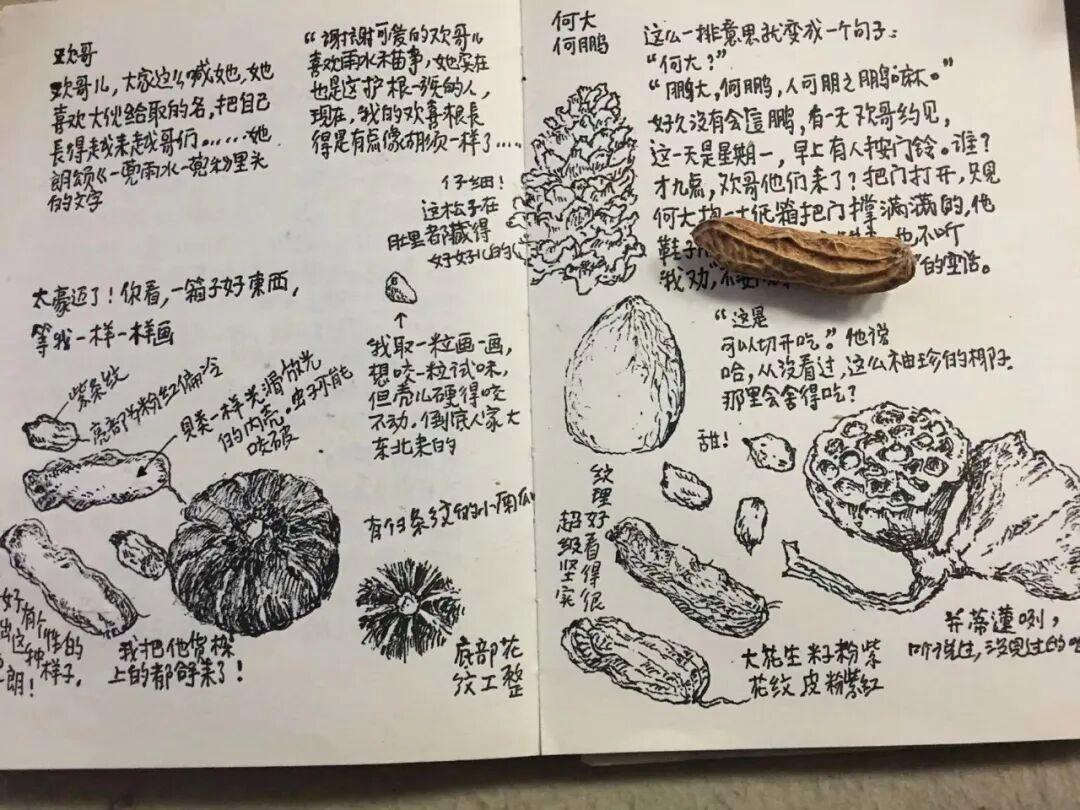 欢哥
欢哥儿，大家这么喊她，她
喜欢大伙给取的名，把自己
長得越来越哥们。.....她
朗颂《一蔸雨水一蔸秒里头
的文字
“谢谢可爱的欢哥儿
喜欢雨水和苗事，她实在
也是这护根一族的人，
现在，我的欢喜根長
得是有点像胡须一样了....
仔细！
这松子在
肚里都藏得
好好儿的
太豪迈了！你看，一箱子好東西，
等我一样一样画
紫条纹
亮部为粉红偏冷
贝类一样光滑放光
的内壳。虫子不能
咬破
↑
我取一粒画一画，
想咬一粒试味，
但壳儿硬得咬
不动。倒底人家大
东北来的
有白条纹的小南瓜
好有个性的
出这种样子，
朗！
我把他货梯
上的都舒来了！
底部花
纹工整
何大
何鹏
这么一排意思就变成一个句子：
“何大？”
“鹏大，何鹏，人可朋之鹏嘛。”
好久没有会這鹏，有一天欢哥约见，
这一天是星期一，早上有人按门铃。谁？
才九点，欢哥他们来了？把门打开，只见
何大抱一大纸箱把门撑满满的，他
鞋子 也不听
我劝“不要 ”的空话。
“这是
可以切开吃。”他说
哈，从没看过，这么袖珍的椰子
那里会舍得吃？
甜！
纹理好看得很
超级坚实
大花生籽粉紫
花纹皮粉紫红
并蒂蓮咧，
听说过，没见过的吧